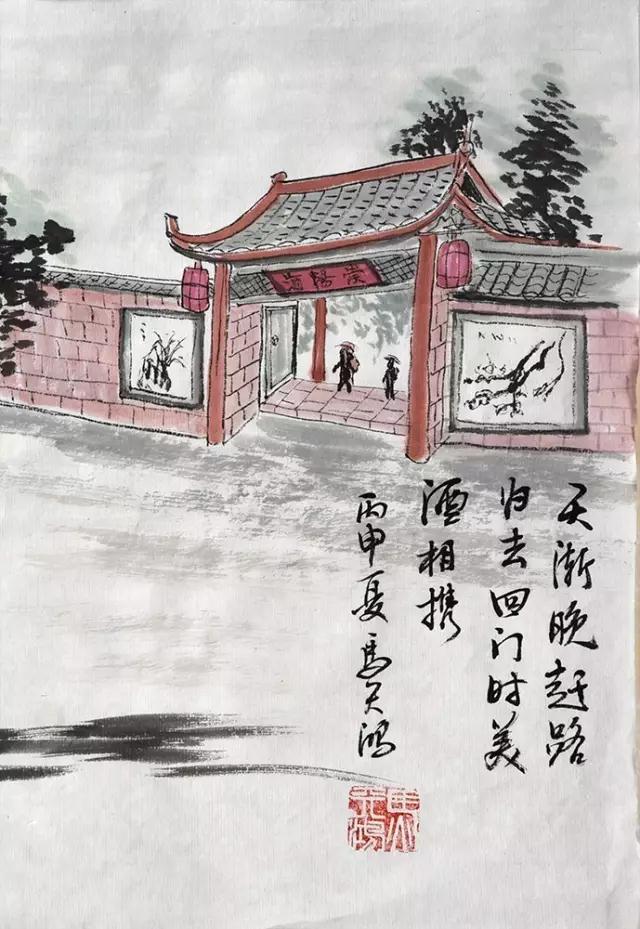 天渐晚赶路
归去回门时美
酒相携
丙申夏马天鸿